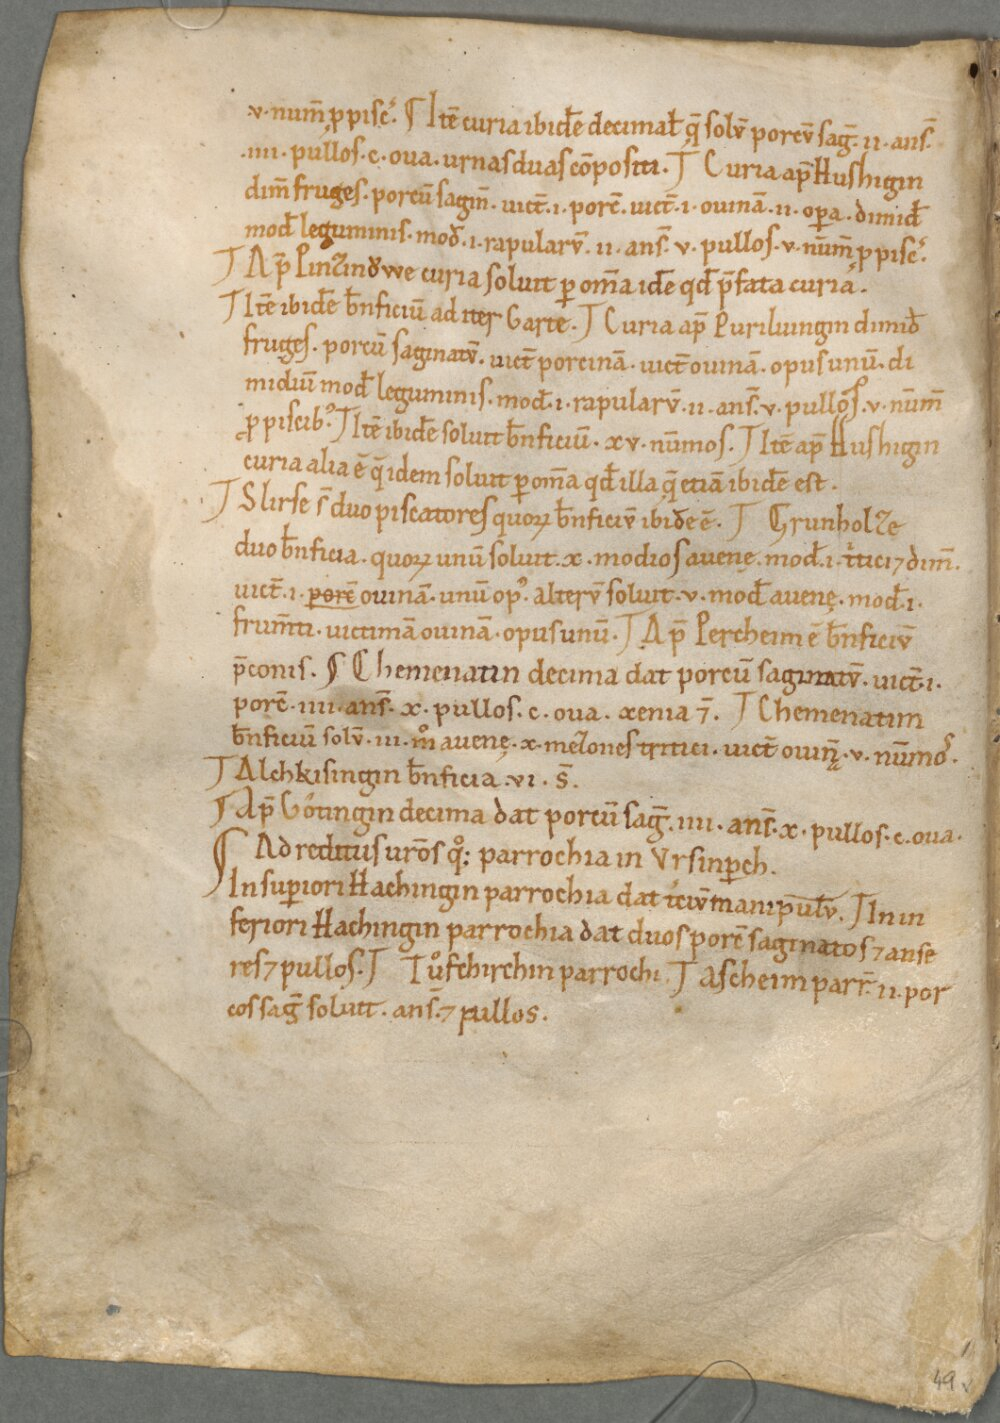 ·v· num̄ p̱ pisc᷒. ¶ Itē curia ibidē decimał q̄ solv̄ porcv̄ sag̅. ıı· ans̄
·ıııı· pullos· c· oua· urnas duas cōpositi. ¶ Curia ap̄ Hushigin
dim̄ fruges· porcū sagin̄· uict̄· ı· porc̄· uict̄· ı· ouinā· ıı· oꝑa· dimid̄
mod̄ leguminis· mod̄· ı· rapularv̄· ıı· ans̄· v· pullos· v· nūm̄ p̱ pisc᷒.
¶ Ap̄ Pinzinǒwe curia soluit ꝑ om̄a idē qd̄ p̄fata curia.
¶ Itē ibidē b̄nficiū ad iter Garte. ¶ Curia ap̄ Purilungin dimid̄
fruges· porcū saginatv̄· uict̄ porcinā· uict̄ ouinā· opus unū· di
midiū mod̄ leguminis· mod̄· ı· rapularv̄· ıı· ans̄· v· pullos· v· nūm̄
p̱ piscib᷒. ¶ Itē ibidē soluit b̄nficiū· xv· nūmos. ¶ Itē ap̄ Hushigin
curia alia ē q̄ idem soluit ꝑ om̄a qd̄ illa q̄ etiā ibidē est.
¶ Slirse s̄ duo piscatores quoꝝ b̄nficiv̄ ibidē ē. ¶ Grunholze
duo b̄nficia· quoꝝ unū soluit· x· modios auenę· mod̄· ı· t̄tici ⁊ dim̄·
uict̄· ı· porc̄ ouinā· unū op᷒. alterv̄ soluit· v· mod̄ auenę· mod̄· ı·
frum̄ti· uictimā ouinā· opus unū. ¶ Ap̄ Percheim ē b̄nficiv̄
p̄conis. ¶ Chemenatin decima dat porcū saginatv̄· uict̄· ı·
porc̄· ıııı· ans̄· x· pullos· c· oua· xenia ⁊̄. ¶ Chemenatim
b̄nficiū solv̄· ııı· mͦ auenę· x· mełones tritici· uict̄ ouin̄ę· v· nūmo᷒.
¶ Alchkisingin b̄nficia· vı· s̄.
¶ Ap̄ Gotingin decima dat porcū sag̅· ıııı· ans̄· x· pullos· c· oua·
¶ Ad reditus urōs qͦ; parrochia in Ursinꝑch.
In suꝑiori Hachingin parrochia dat t̄civ̄ manipulv̄. ¶ In in
feriori Hachingin parrochia dat duos porc̄ saginatos ⁊ anse
res ⁊ pullos. ¶ Tůfchirchin parrochi. ¶ Ascheim parr̄· ıı· por
cos sag̅ soluit· ans̄· ⁊ pullos.
49